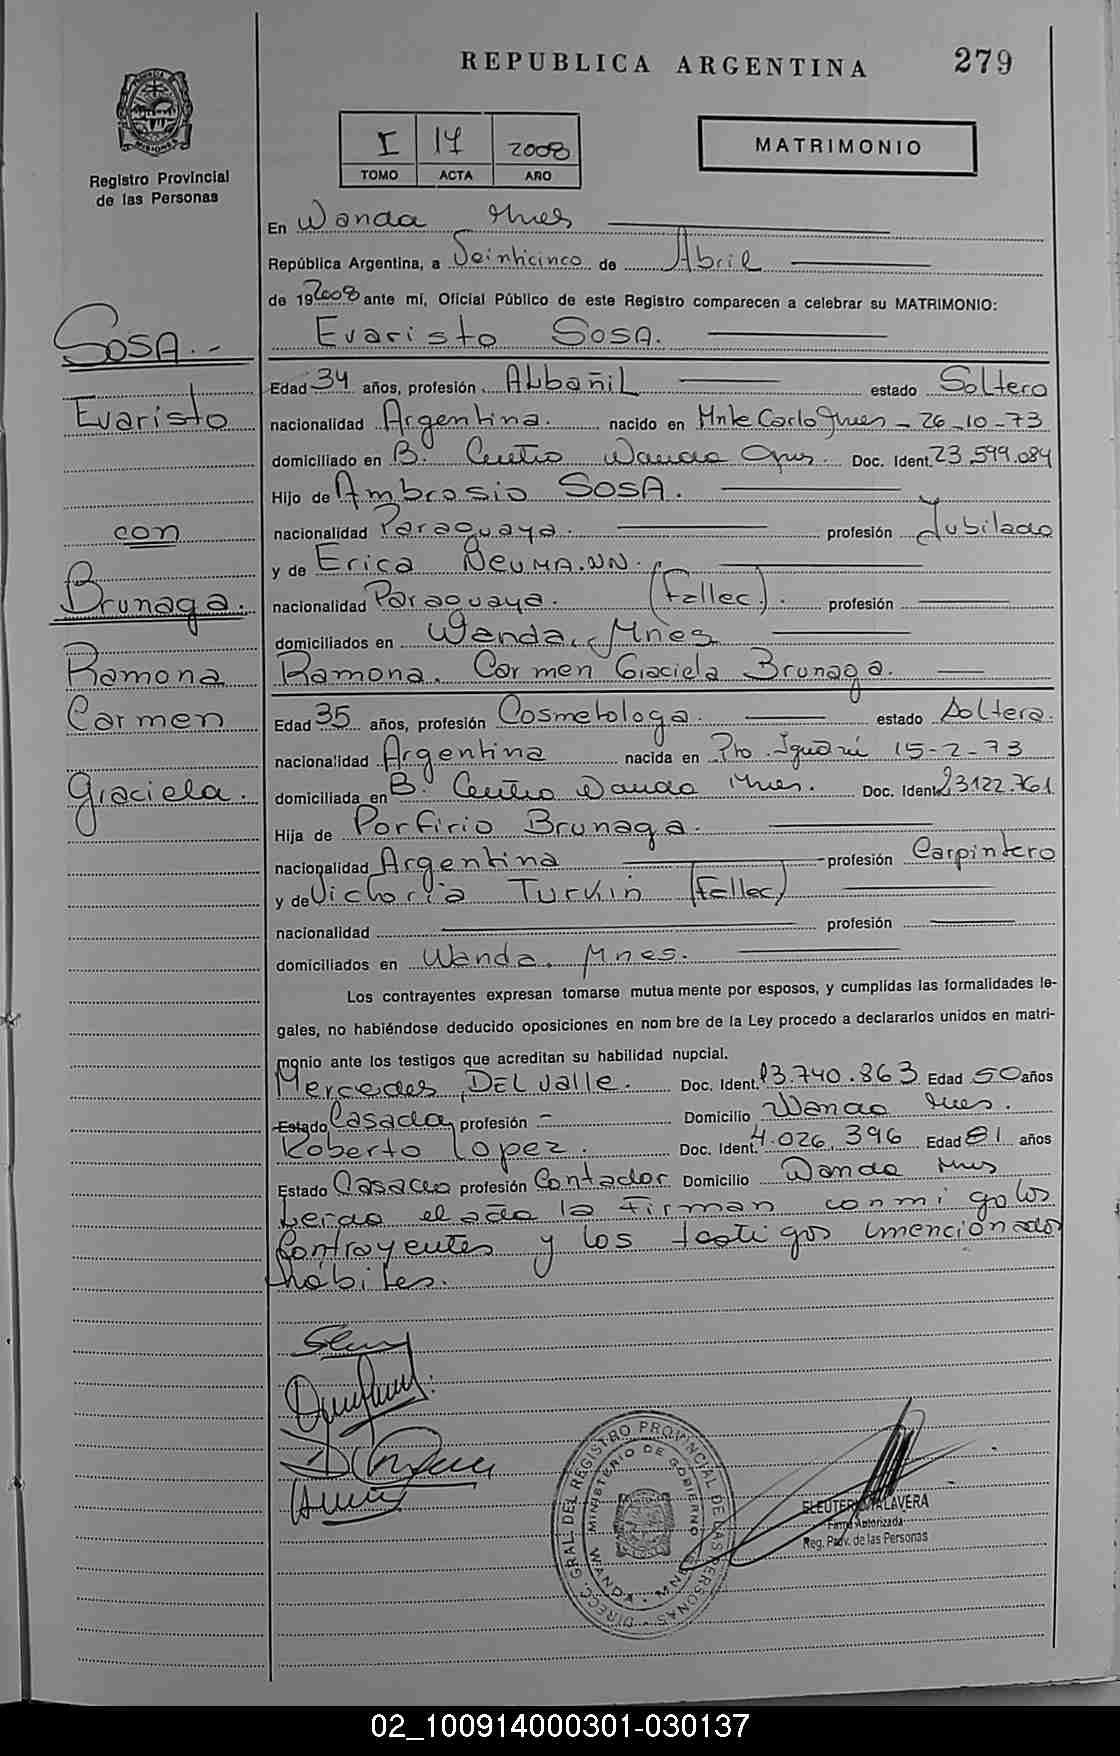 REPUBLICA ARGENTINA
279
PROVINCIA DE MISIONES
Registro Provincial
de las Personas
I 17 2008
TOMO ACTA AÑO
MATRIMONIO
En Wanda Mnes
República Argentina, a Veinticinco de Abril
de 19 2008 ante mí, Oficial Público de este Registro comparecen a celebrar su MATRIMONIO:
Evaristo SOSA.
SOSA.-
Evaristo
con
Brunaga.
Ramona
Carmen
Graciela.
Edad 34 años, profesión Albañil estado Soltero
nacionalidad Argentina. nacido en Mnte Carlo Mnes - 26-10-73
domiciliado en B. Centro Wanda Mnes. Doc. Ident. 23.599.084
Hijo de Ambrosio SOSA.
nacionalidad Paraguaya. profesión Jubilado
y de Erica NEUMANN.
nacionalidad Paraguaya. (Fallec). profesión
domiciliados en Wanda, Mnes
Ramona. Carmen Graciela Brunaga.
Edad 35 años, profesión Cosmetologa. estado Soltera.
nacionalidad Argentina nacida en Pto. Iguazú 15-2-73
domiciliada en B. Centro Wanda Mnes. Doc. Ident. 23122.761
Hija de Porfirio Brunaga.
nacionalidad Argentina profesión Carpintero
y de Victoria Turkin (Fallec)
nacionalidad profesión
domiciliados en Wanda. Mnes.
Los contrayentes expresan tomarse mutua mente por esposos, y cumplidas las formalidades le-
gales, no habiéndose deducido oposiciones en nom bre de la Ley procedo a declararlos unidos en matri-
monio ante los testigos que acreditan su habilidad nupcial.
Mercedes, DEL Valle. Doc. Ident. 13.740.863 Edad 50 años
Estado Casada profesión - Domicilio Wanda Mnes.
Roberto Lopez. Doc. Ident. 4.026.396 Edad 81 años
Estado Casado profesión Contador Domicilio Wanda Mnes
Leida el acta la firman conmigo los
Contrayentes y los testigos mencionados
habiles.
DIRECC. GRAL. DEL REGISTRO PROVINCIAL DE LAS PERSONAS
MINISTERIO DE GOBIERNO
WANDA - MNES
ELEUTERIO TALAVERA
Firma Autorizada
Reg. Prov. de las Personas
02_100914000301-030137